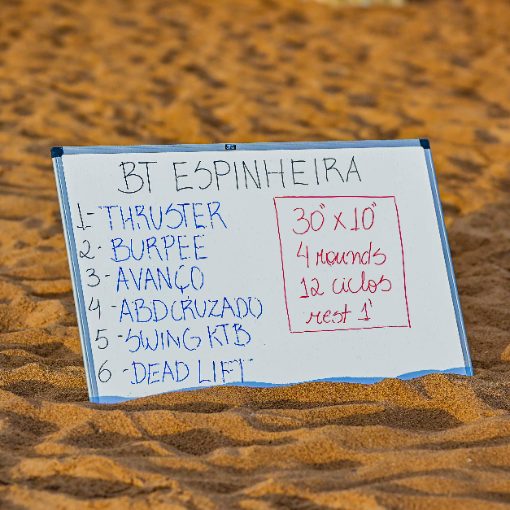 BT ESPINHEIRA
1- THRUSTER
2- BURPEE
3- AVANÇO
4 -ABD CRUZADO
5 -SWING KTB
6 -DEAD LIFT
30" X 10"
4 rounds
12 ciclos
rest 1'